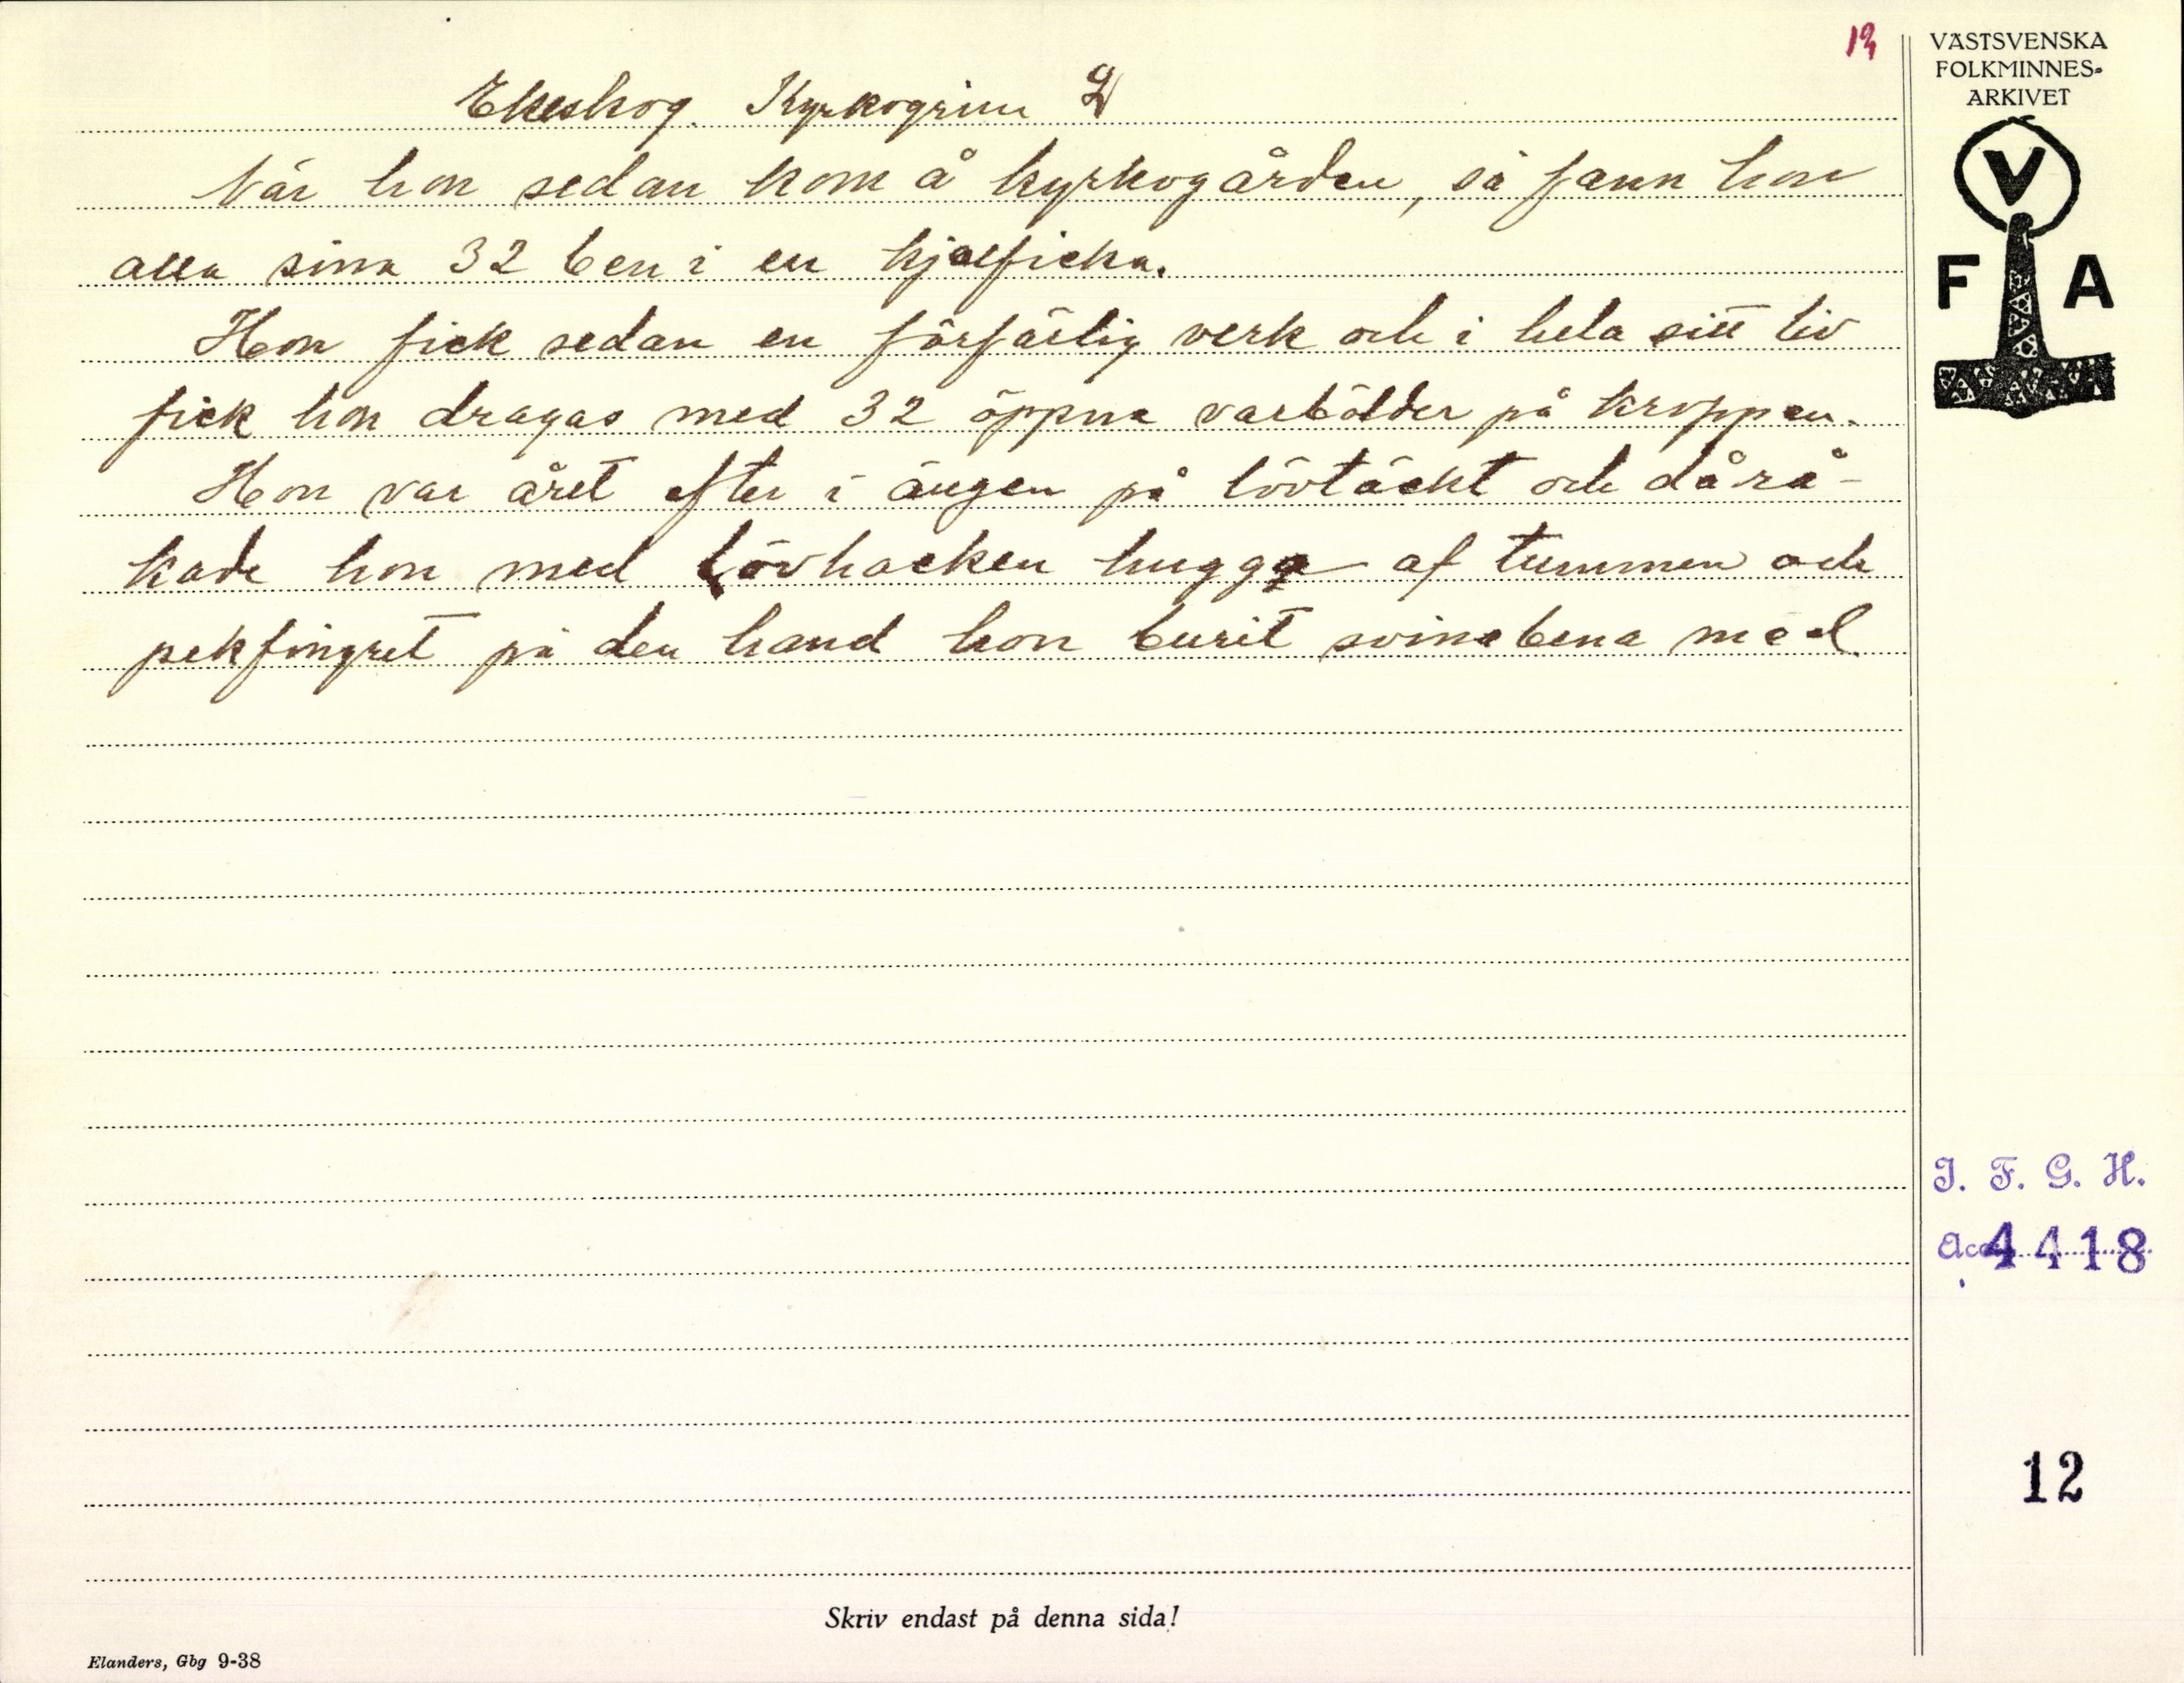 13
VÄSTSVENSKA
FOLKMINNES-
ARKIVET
V
F A
Ekeskog. Kyrkogrim 2
När hon sedan kom å kyrkogården, så fann hon
alla sina 32 ben i en kjolficka.
Hon fick sedan en förfärlig verk och i hela sitt liv
fick hon dragas med 32 öppna varbölder på kroppen.
Hon var året efter i ängen på lövtäckt och då rå-
kade hon med lövhacken hugga af tummen och
pekfingret på den hand hon burit svinabena med.
I. F. G. H.
Acc. 4418
12
Skriv endast på denna sida!
Elanders, Gbg 9-38